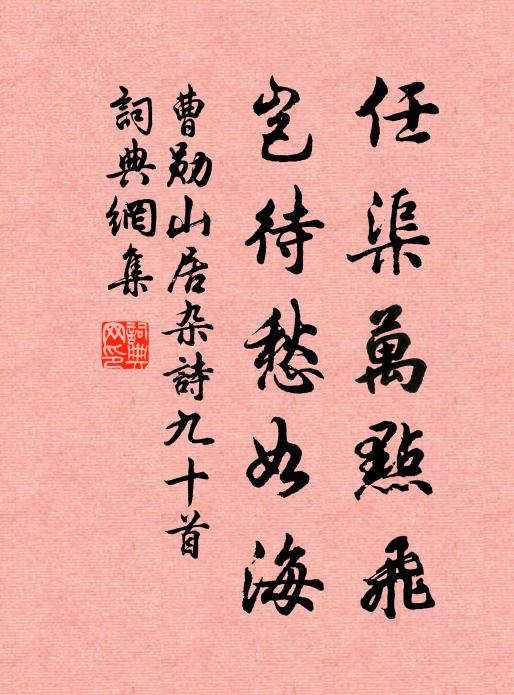 任渠萬點飛
豈待愁如海
曹勛山居杂詩九十首
詞典網集
詞典網印